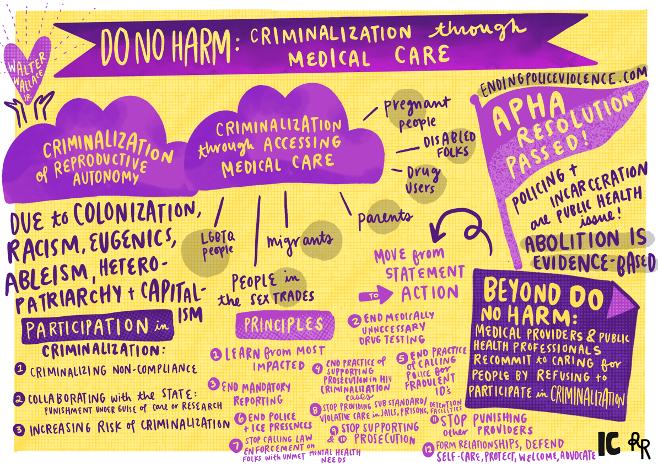 DO NO HARM: CRIMINALIZATION through
MEDICAL CARE
WALTER
WALLACE
JR
CRIMINALIZATION
of REPRODUCTIVE
AUTONOMY
DUE to COLONIZATION,
RACISM, EUGENICS,
ABLEISM, HETERO-
PATRIARCHY + CAPITAL-
ISM
CRIMINALIZATION
through ACCESSING
MEDICAL CARE
pregnant
people
DISABLED
FOLKS
Drug
users
parents
migrants
PEOPLE in
the SEX TRADES
LGBTQ
people
ENDINGPOLICEVIOLENCE.COM
APHA
RESOLUTION
PASSED!
POLICING +
INCARCERATION
are PUBLIC HEALTH
issue!
ABOLITION IS
EVIDENCE-BASED
MOVE from
STATEMENT
TO ACTION
PARTICIPATION in
CRIMINALIZATION:
1 CRIMINALIZING NON-COMPLIANCE
2 COLLABORATING with the STATE:
PUNISHMENT UNDER GUISE of care or RESEARCH
3 INCREASING RISK of CRIMINALIZATION
PRINCIPLES
1 LEARN from MOST
IMPACTED
2 END MEDICALLY
UNNECESSARY
DRUG TESTING
3 END MANDATORY
REPORTING
4 END PRACTICE of
SUPPORTING
PROSECUTION in HIV
CRIMINALIZATION
cases
5 END PRACTICE
of CALLING
POLICE for
FRAUDULENT
IDs
6 END POLICE
+ ICE PRESENCES
7 STOP CALLING LAW
ENFORCEMENT on
FOLKS with UNMET MENTAL HEALTH
NEEDS
8 STOP PROVIDING SUB STANDARD,
VIOLATIVE CARE in JAILS, PRISONS, DETENTION
FACILITIES
9 10 STOP SUPPORTING
PROSECUTION
11 STOP PUNISHING
other PROVIDERS
12 FORM RELATIONSHIPS, DEFEND
SELF-CARE, PROTECT, WELCOME, ADVOCATE
BEYOND DO
NO HARM:
MEDICAL PROVIDERS & PUBLIC
HEALTH PROFESSIONALS
RECOMMIT to CARING for
PEOPLE BY REFUSING to
PARTICIPATE in CRIMINALIZATION
IC RR